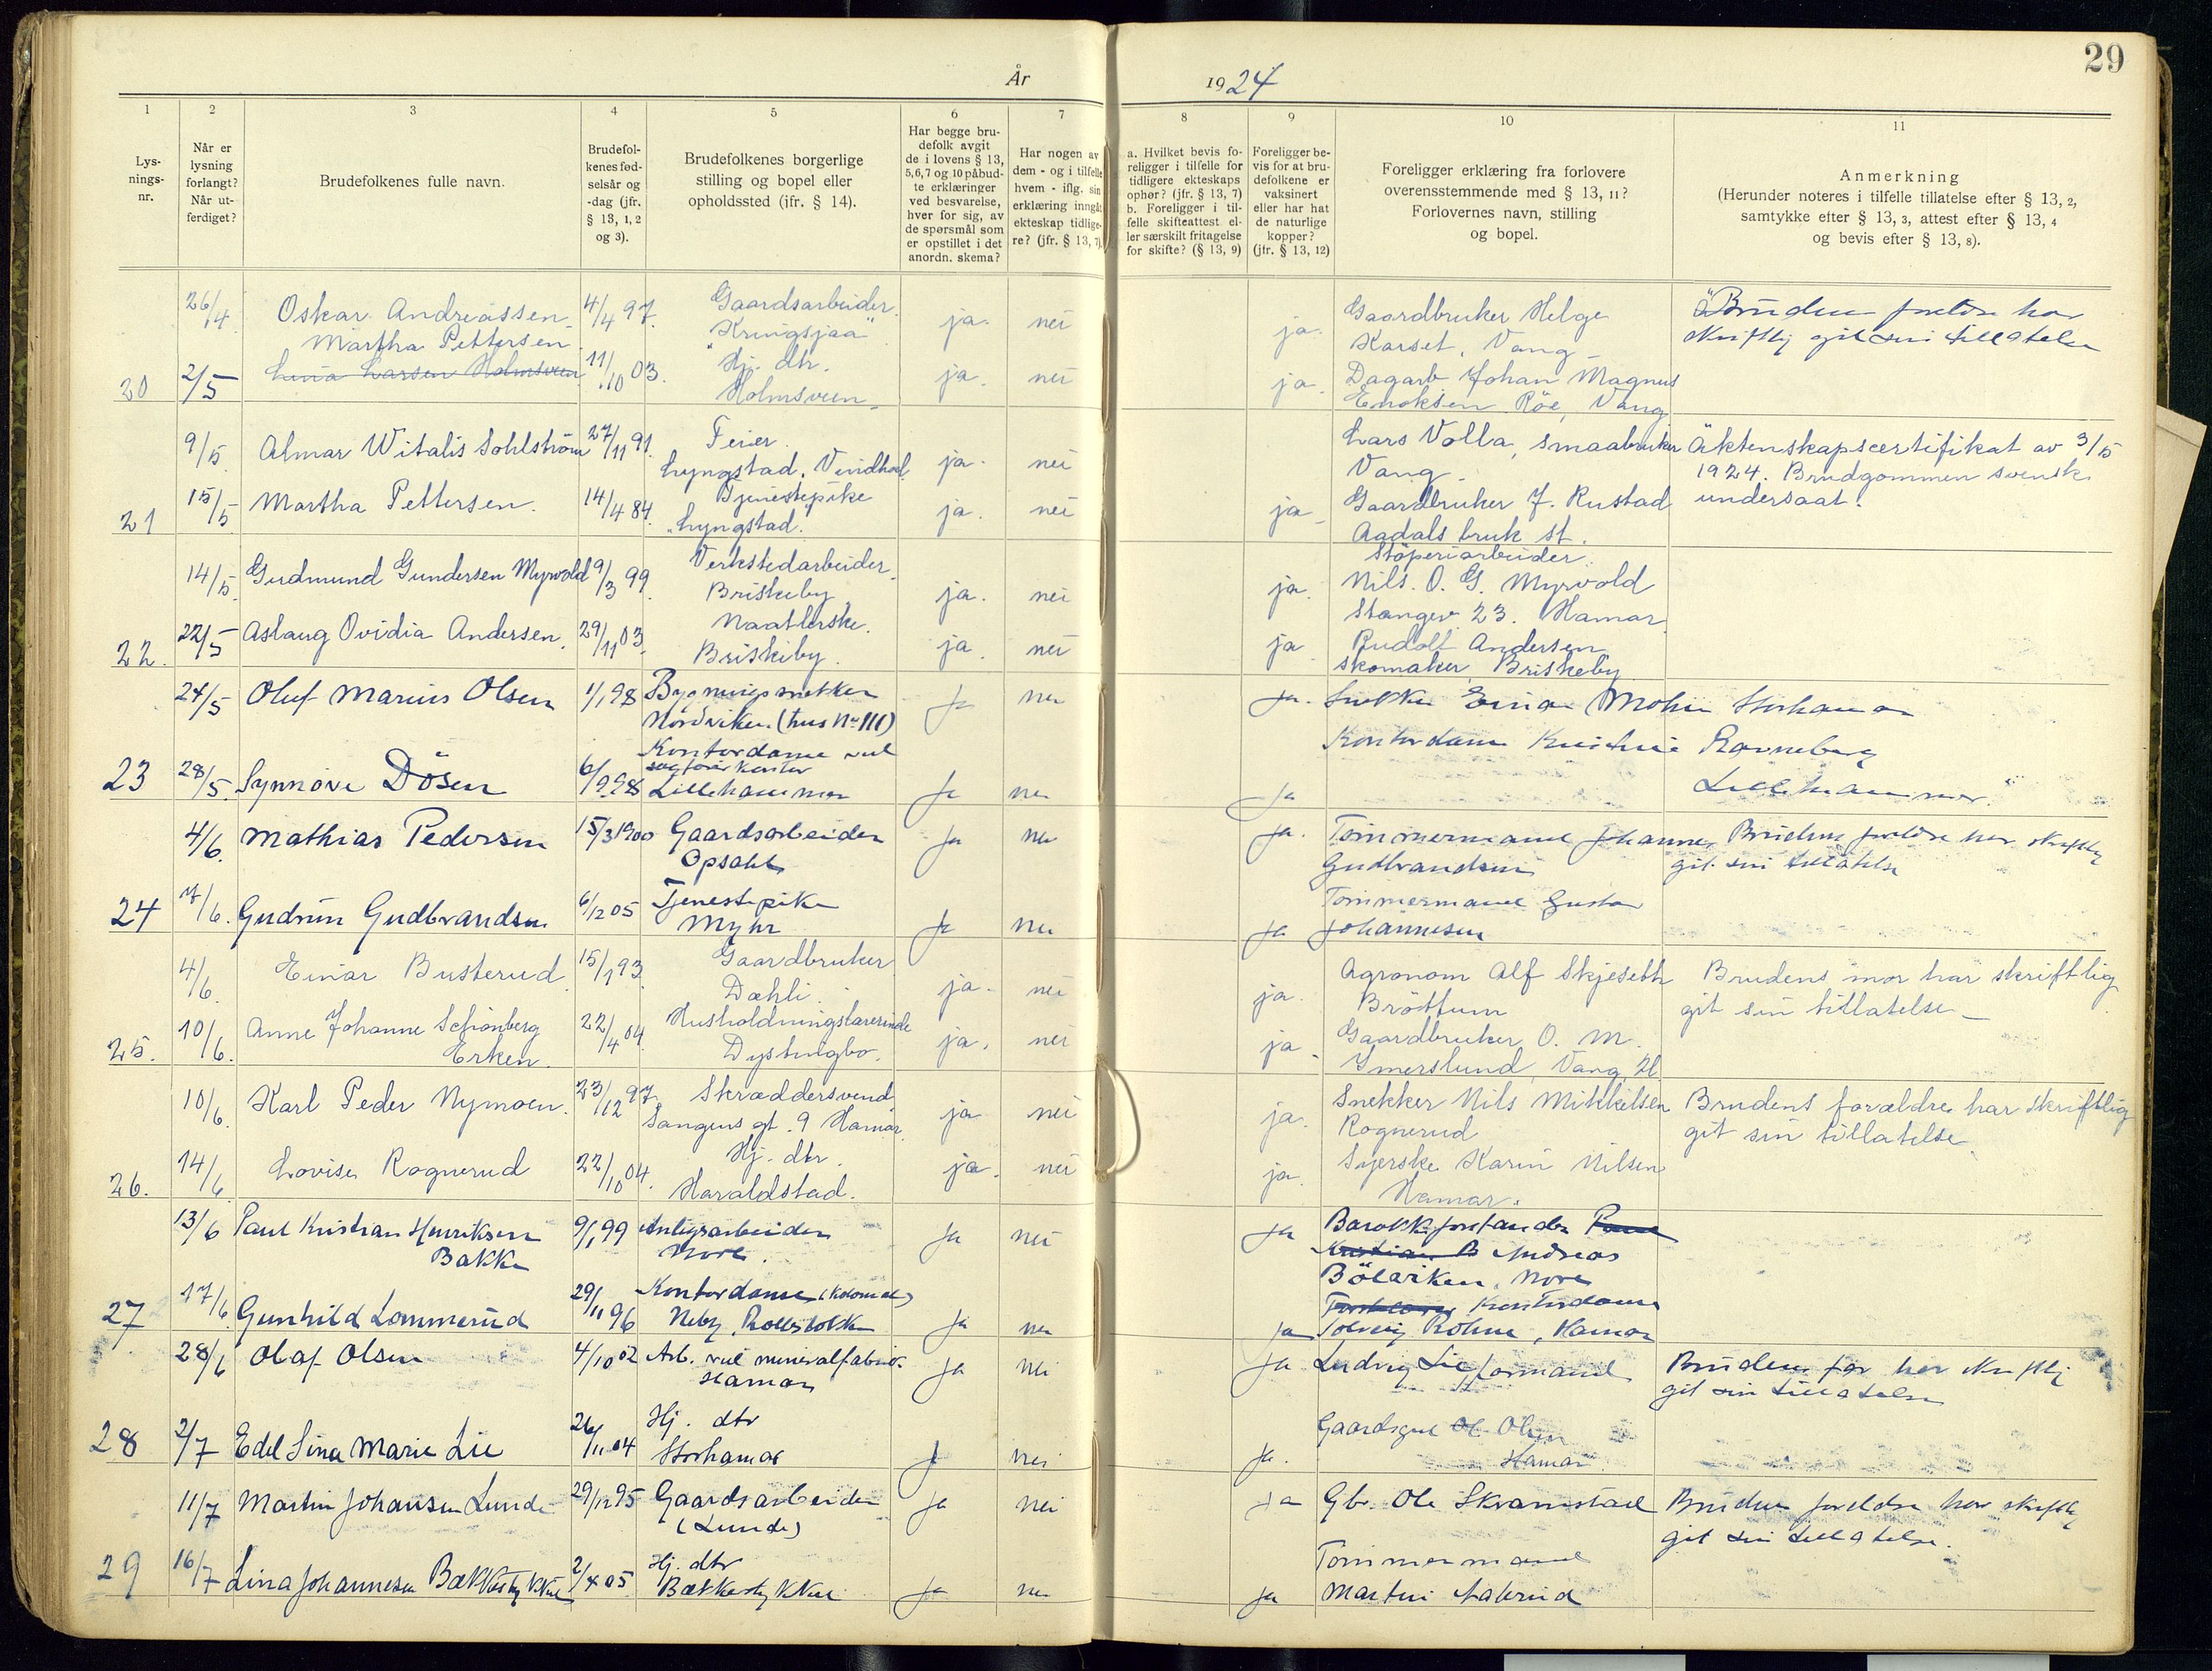 29
År 1924
1 2 3 4 5 6 7 8 9 10 11
Lys-
nings-
nr.
Når er
lysning
forlangt?
Når ut-
ferdiget?
Brudefolkenes fulle navn.
Brudefol-
kenes fød-
selsår og
-dag (jfr.
§ 13, 1, 2
og 3).
Brudefolkenes borgerlige
stilling og bopel eller
opholdssted (jfr. § 14).
Har begge bru-
defolk avgit
de i lovens § 13,
5,6,7 og 10 påbud-
te erklæringer
ved besvarelse,
hver for sig, av
de spørsmål som
er opstillet i det
anordn. skema?
Har nogen av
dem - og i tilfelle
hvem - iflg. sin
erklæring inngåt
ekteskap tidlige-
re? (jfr. § 13, 7)
a. Hvilket bevis fo-
religger i tilfelle for
tidligere ekteskaps
ophør? (jfr. § 13, 7)
b. Foreligger i til-
felle skifteattest el-
ler særskilt fritagelse
for skifte? (§ 13, 9)
Foreligger be-
vis for at bru-
defolkene er
vaksinert
eller har hat
de naturlige
kopper?
(jfr. § 13, 12)
Foreligger erklæring fra forlovere
overensstemmende med § 13, 11?
Forlovernes navn, stilling
og bopel.
Anmerkning
(Herunder noteres i tilfelle tillatelse efter § 13, 2,
samtykke efter § 13, 3, attest efter § 13, 4
og bevis efter § 13, 8).
26/4 Oskar Andreassen 4/4 97. Gaardsarbeider ja. nei ja. Gaardbruker Helge Brudens foreldre har
Martha Pettersen "Kringsjaa" Karset, Vang skriftlig git sin tillatelse
20 2/5 Lina Larsen Holmsveen 11/10 03. Hj. dtr. ja. nei ja. Dagarb Johan Magnus
Holmsveen Enoksen Röe, Vang
9/5 Almar Witalis Sohlström 27/11 91. Feier ja. nei Lars Volla, smaabruker Äktenskapscertifikat av 3/5
Lyngstad, Vang 1924. Brudgommen svensk
21 15/5 Martha Pettersen. 14/4 84. Tjenestepike ja. nei ja Gaardbruker J. Rustad undersaat.
Lyngstad. Aadals bruk st.
14/5 Gudmund Gundersen Myrvold 9/3 99. Verkstedarbeider ja. nei ja. Støperiarbeider
Briskeby Nils. O. G. Myrvold
Stangev. 23. Hamar
22. 22/5 Aslaug Ovidia Andersen. 29/11 03. Naatlerske. ja. nei ja Rudolf Andersen
Briskeby skomaker, Briskeby
24/5 Oluf Marius Olsen 1/1 98 Bygningssnekker Ja nei Ja. Snekker Einar Mohn Storhamar
Nordviken (hus No 111)
23 28/5. Synnøve Dösen 6/9 98 Kontordame ved Ja nei Ja Kontordame Ravneberg
sagfører kontor
Lillehammer Lillehammer.
4/6. Mathias Pedersen 15/3 1900 Gaardsarbeider Ja nei Ja. Tømmermand Johannes Brudens foreldre har skriftlig
Opsahl Gudbrandsen git sin tillatelse
24 7/6. Gudrun Gudbrandsen 6/12 05 Tjenestepike Ja nei Ja Tømmermand Gustav
Myhr Johannesen
4/6. Einar Busterud 15/1 93. Gaardbruker ja. nei ja. Agronom Alf Skjeseth Brudens mor har skriftlig
Dæhli. Bröttum git sin tillatelse
25. 10/6. Anne Johanne Schönberg 22/4 04. Husholdningslærerinde ja. nei ja. Gaardbruker O. M.
Erken. Dystingbo. Imerslund, Vang H.
10/6. Karl Peder Nymoen. 23/12 97. Skræddersvend ja nei ja. Snekker Nils Mikkelsen Brudens forældre har skriftlig
Vangens gt. 9 Hamar Rognerud git sin tillatelse
26. 14/6 Lovise Rognerud 22/10 04. Hj. dtr. ja. nei ja. Syerske Karin Nilsen
Haraldstad. Hamar.
13/6 Paul Kristian Henriksen 9/1 99 Anlegsarbeider Ja nei Ja Barakkeforstander Paul
Bakke Nore. Kristian B Andreas
Böevicken, Nore
27 17/6 Gunhild Lommerud 29/11 96 Kontordame Ja nei Ja Kontordame
Neby, Solveig Röhne, Hamar
28/6 Olaf Olsen 4/10 02 Arb. ved mineralfabrik. Ja nei Ja Ludvig Lie, formand Brudens far har skriftlig
Hamar git sin tillatelse
28 2/7 Edel Lina Marie Lie 26/11 04 Hj. dtr Ja nei Ja. Gaardsgut Ol. Olsen
Storhamar Hamar
11/7 Martin Johansen Lunde 29/12 95 Gaardsarbeider Ja nei Ja Gbr. Ole Skramstad Brudens foreldre har skriftlig
(Lunde) git sin tillatelse.
29 16/7 Lina Johannesen Bækkestykket 2/4 05 Hj. dtr Ja nei Ja Tømmermand
Bækkestykket Martin Aaberud